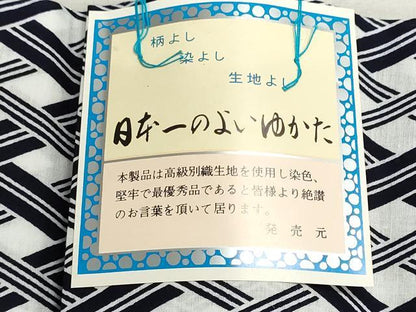 柄よし
染よし
生地よし
日本一のよいゆかた
本製品は高級別織生地を使用し染色、
堅牢で最優秀品であると皆様より絶讃
のお言葉を頂いて居ります。
発売元